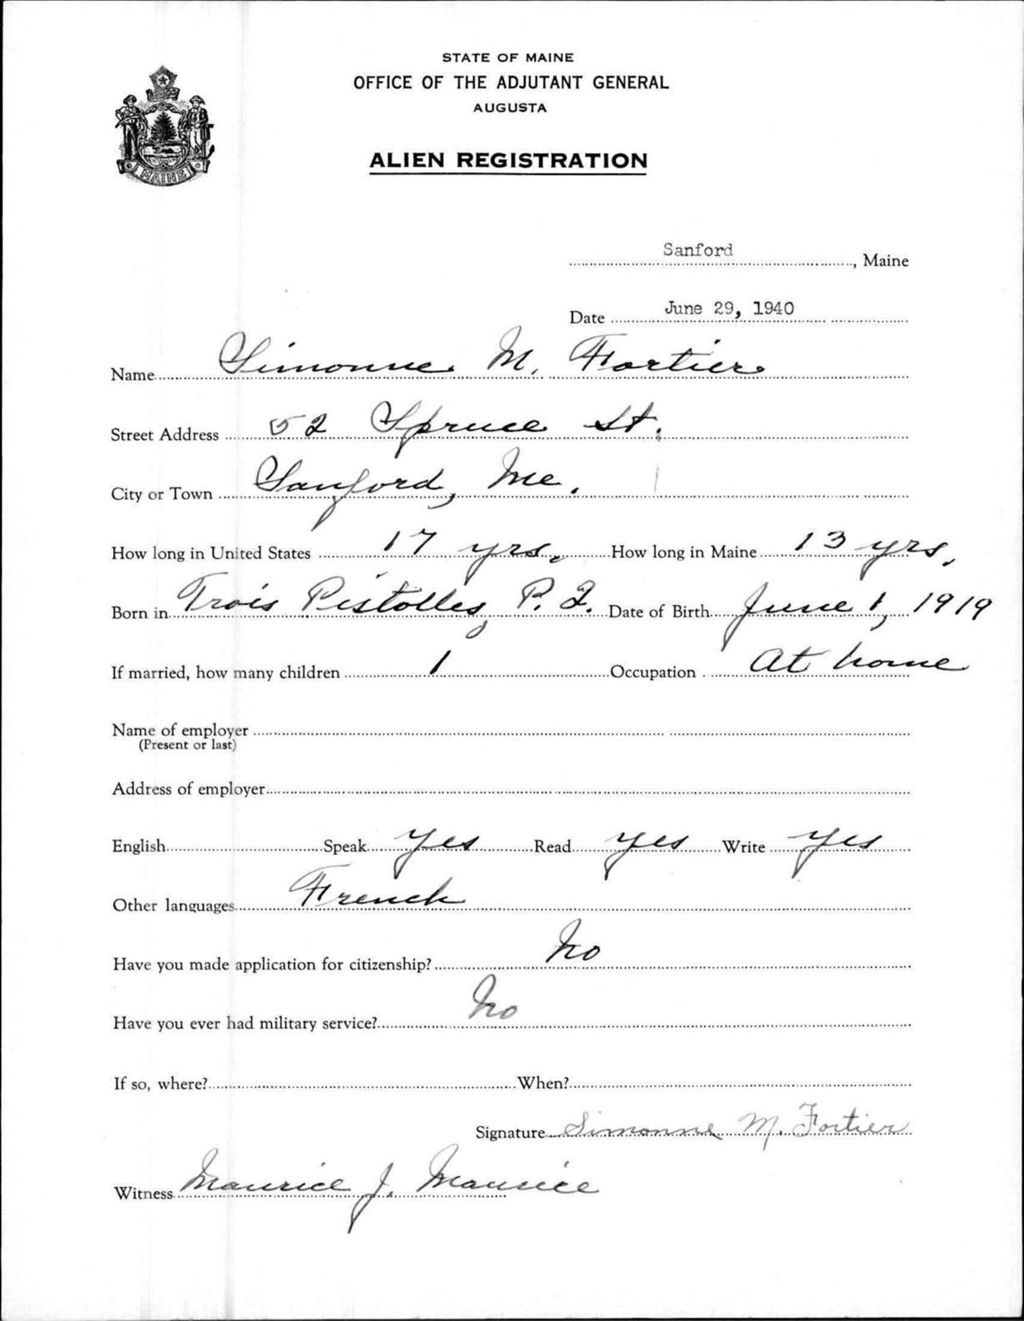 STATE OF MAINE
OFFICE OF THE ADJUTANT GENERAL
AUGUSTA
ALIEN REGISTRATION
Sanford, Maine
Date June 29, 1940
Name Simonne M. Fortier
Street Address 52 Spruce St.
City or Town Sanford, Me.
How long in United States 17 yrs. How long in Maine 13 yrs.
Born in Trois Pistolles, P. Q. Date of Birth June 1, 1919
If married, how many children 1 Occupation At home
Name of employer
(Present or last)
Address of employer
English Speak Yes Read Yes Write Yes
Other languages French
Have you made application for citizenship? No
Have you ever had military service? No
If so, where? When?
Signature Simonne M. Fortier
Witness Maurice J. Maurice